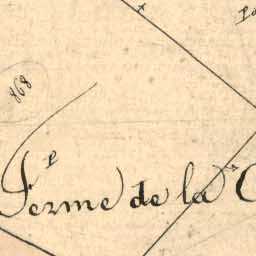 868
p
Ferme de la